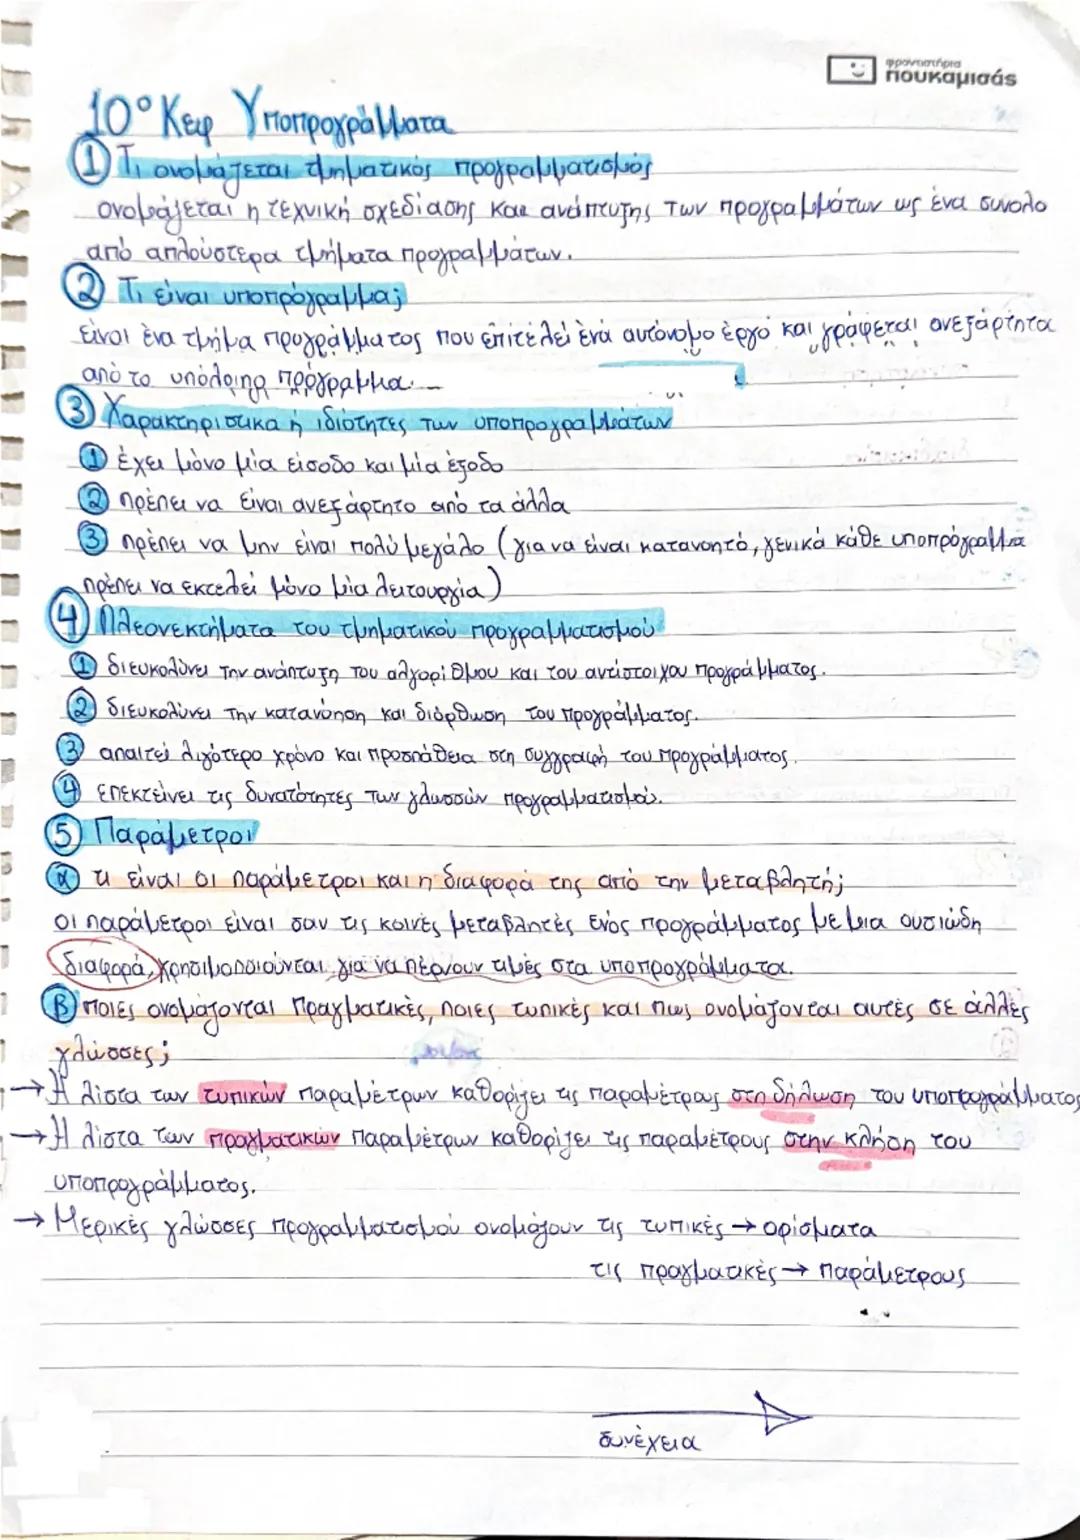 φροντιστήρια
πουκαμισάς
10° Κεφ Υποπρογράμματα
① Τι ονομάζεται τμηματικός προγραμματισμός
ονομάζεται η τεχνική σχεδίασης και ανάπτυξης των προγραμμάτων ως ένα συνολο
από απλούστερα τμήματα προγραμμάτων.
② Τι είναι υποπρόγραμμα;
είναι ένα τμήμα προγράμματος που επιτελεί ένα αυτόνομο έργο και γράφεται ανεξάρτητα
από το υπόλοιπο πρόγραμμα.
③ Χαρακτηριστικα ή ιδιότητες των υποπρογραμμάτων
① έχει μόνο μία είσοδο και μία έξοδο
② πρέπει να είναι ανεξάρτητο από τα άλλα
③ πρέπει να μην είναι πολύ μεγάλο (για να είναι κατανοητό, γενικά κάθε υποπρόγραμμα
πρέπει να εκτελεί μόνο μία λειτουργία)
④ Πλεονεκτήματα του τμηματικού προγραμματισμού
① διευκολύνει την ανάπτυξη του αλγορίθμου και του αντίστοιχου προγράμματος.
② διευκολύνει την κατανόηση και διόρθωση του προγράμματος.
③ απαιτεί λιγότερο χρόνο και προσπάθεια στη συγγραφή του προγράμματος.
④ επεκτείνει τις δυνατότητες των γλωσσών προγραμματισμού.
⑤ Παράμετροι
α τι είναι οι παράμετροι και η διαφορά της από την μεταβλητή;
οι παράμετροι είναι σαν τις κοινές μεταβλητές ενός προγράμματος με μια ουσιώδη
διαφορά, χρησιμοποιούνται για να πέρνουν τιμές στα υποπρογράμματα.
β ποιες ονομάζονται πραγματικές, ποιες τυπικές και πως ονομάζονται αυτές σε άλλες
γλώσσες;
→ Η λίστα των τυπικών παραμέτρων καθορίζει τις παραμέτρους στη δήλωση του υποπρογράμματος
→ Η λίστα των πραγματικών παραμέτρων καθορίζει τις παραμέτρους στην κλήση του
υποπρογράμματος.
→ Μερικές γλώσσες προγραμματισμού ονομάζουν τις τυπικές → ορίσματα
τις πραγματικές → παράμετρους
συνέχεια